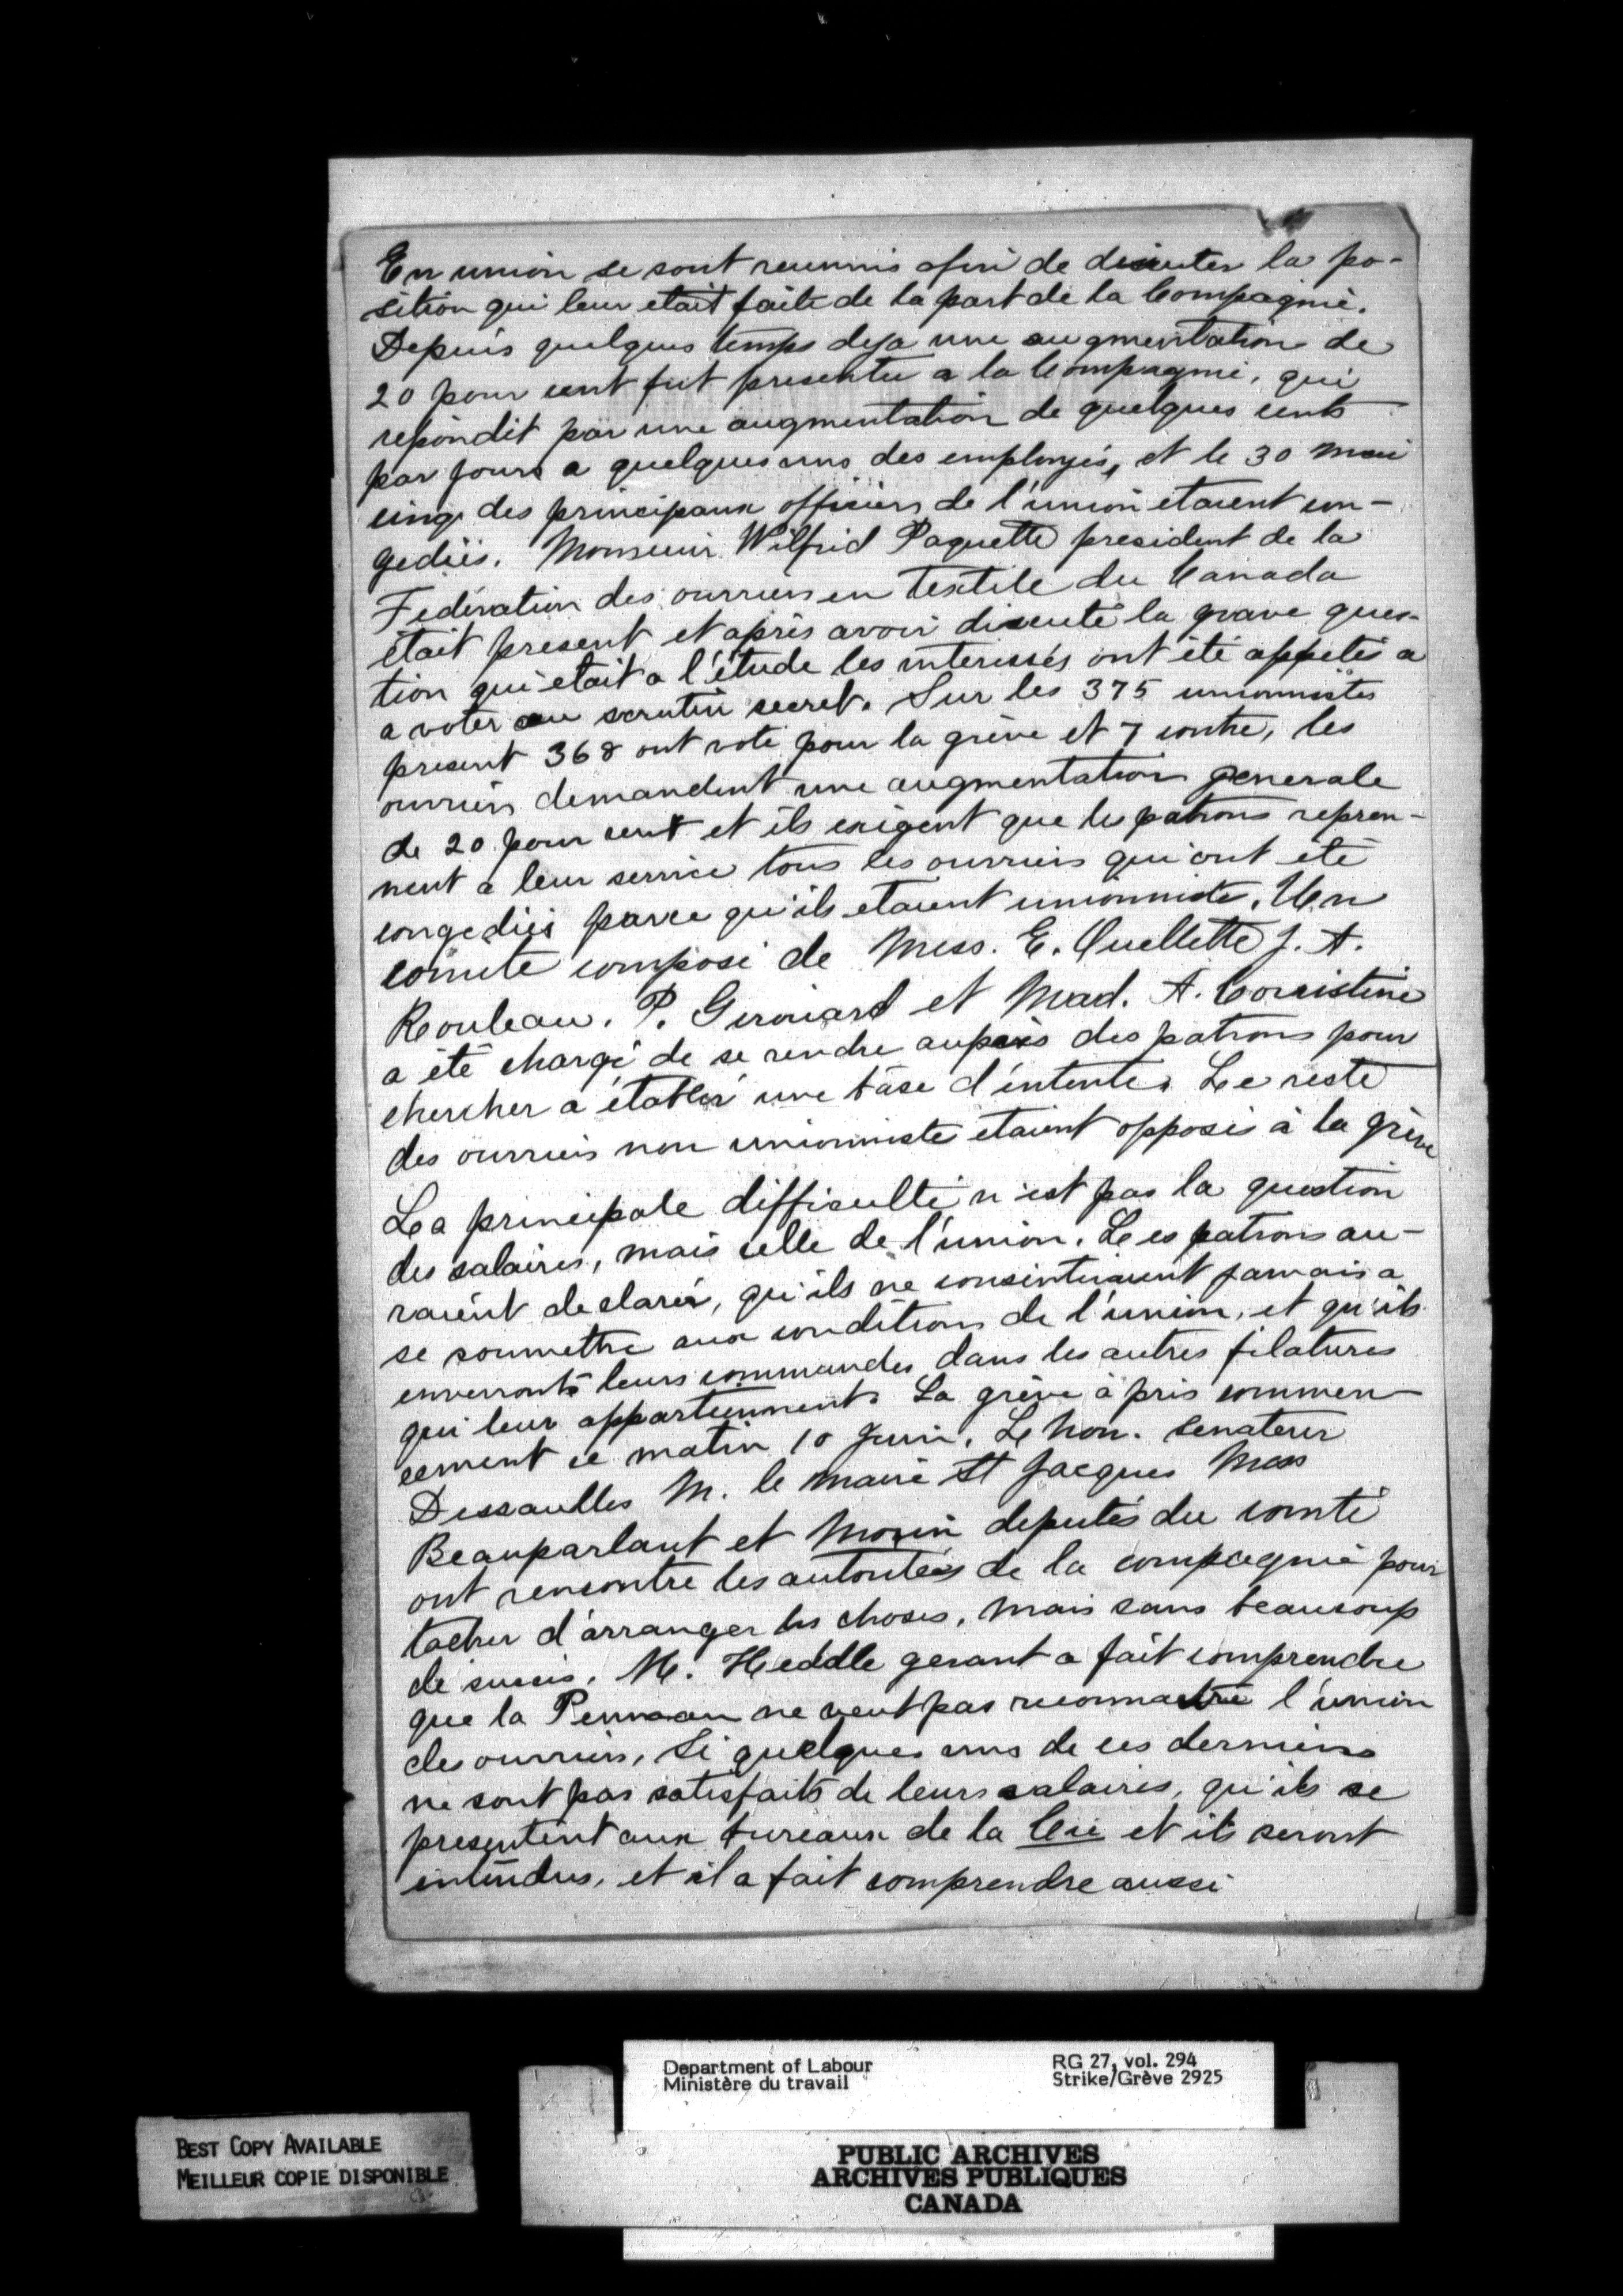 En union se sont reunnis afin de discuter la po-
sition qui leur etait faite de la part de la Compagnie.
Depuis quelques temps deja une augmentation de
20 pour cent fut presentee a la Compagnie, qui
repondit par une augmentation de quelques cents
par jours a quelques uns des employés, et le 30 mai
cinq des principaux officiers de l'union etaient con-
gediés. Monsieur Wilfrid Paquette president de la
Fedération des ouvriers en Textile du Canada
était present et après avoir discuté la grave ques-
tion qui etait a l'étude les interessés ont été appelés a
a voter au scrutin secret. Sur les 375 unionnistes
present 368 ont voté pour la grève et 7 contre, les
ouvriers demandent une augmentation generale
de 20 pour cent et ils exigent que les patrons repren-
nent a leur service tous les ouvriers qui ont été
congediés parce qu'ils etaient unionniste. Un
comite composé de Mess. E. Ouellette J. A.
Rouleau. P. Girouard et Mad. A. Corristine
a été chargé de se rendre auprès des patrons pour
chercher a établir une base d'entente. Le reste
des ouvriers non unionniste etaient opposés à la grève
La principale difficulté n'est pas la question
des salaires, mais celle de l'union. Les patrons au-
raient declarés, qu'ils ne consinteraient jamais a
se soumettre aux conditions de l'union, et qu'ils
enverront leurs commandes dans les autres filatures
qui leur appartiennent. La grève à pris commen-
cement ce matin 10 Juin. Le hon. senateur
Dessaulles M. le maire St Jacques Mess
Beauparlant et Morin deputés du comté
ont rencontré les autoritées de la compagnie pour
tacher d'arranger les choses, mais sans beaucoup
de succès. M. Heddle gerant a fait comprendre
que la Penman ne veut pas reconnaitre l'union
des ouvriers, Si quelques uns de ces derniers
ne sont pas satisfaits de leurs salaires, qu'ils se
presentent aux bureaux de la Cie et ils seront
entendus, et il a fait comprendre aussi
Department of Labour
Ministère du travail
RG 27, vol. 294
Strike/Grève 2925
BEST COPY AVAILABLE
MEILLEUR COPIE DISPONIBLE
PUBLIC ARCHIVES
ARCHIVES PUBLIQUES
CANADA